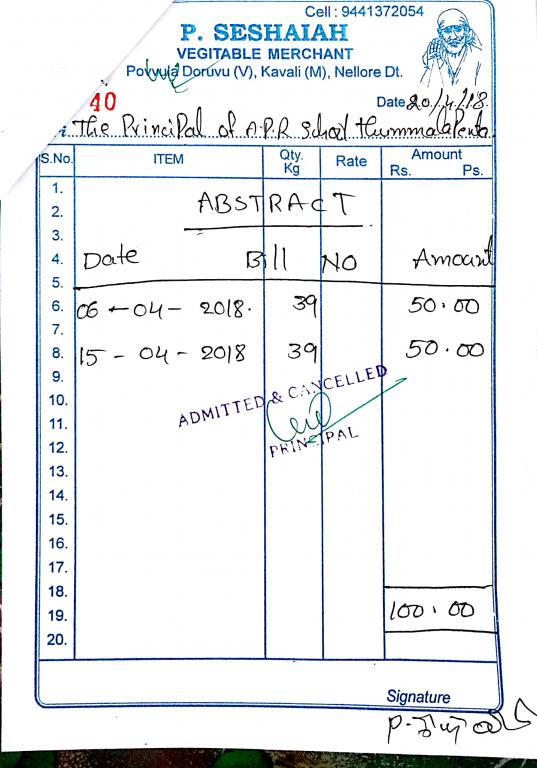 Cell : 9441372054
P. SESHAIAH
VEGITABLE MERCHANT
Povvula Doruvu (V), Kavali (M), Nellore Dt.
40
Date 20/4/18
The Principal of A.P.R School thummalapenta
S.No. ITEM Qty. Kg Rate Amount Rs. Ps.
1.
2. ABSTRACT
3.
4. Date Bill NO Amount
5.
6. 06-04-2018. 39 50.00
7.
8. 15-04-2018 39 50.00
9.
ADMITTED & CANCELLED
10.
11.
PRINCIPAL
12.
13.
14.
15.
16.
17.
18.
19. 100.00
20.
Signature